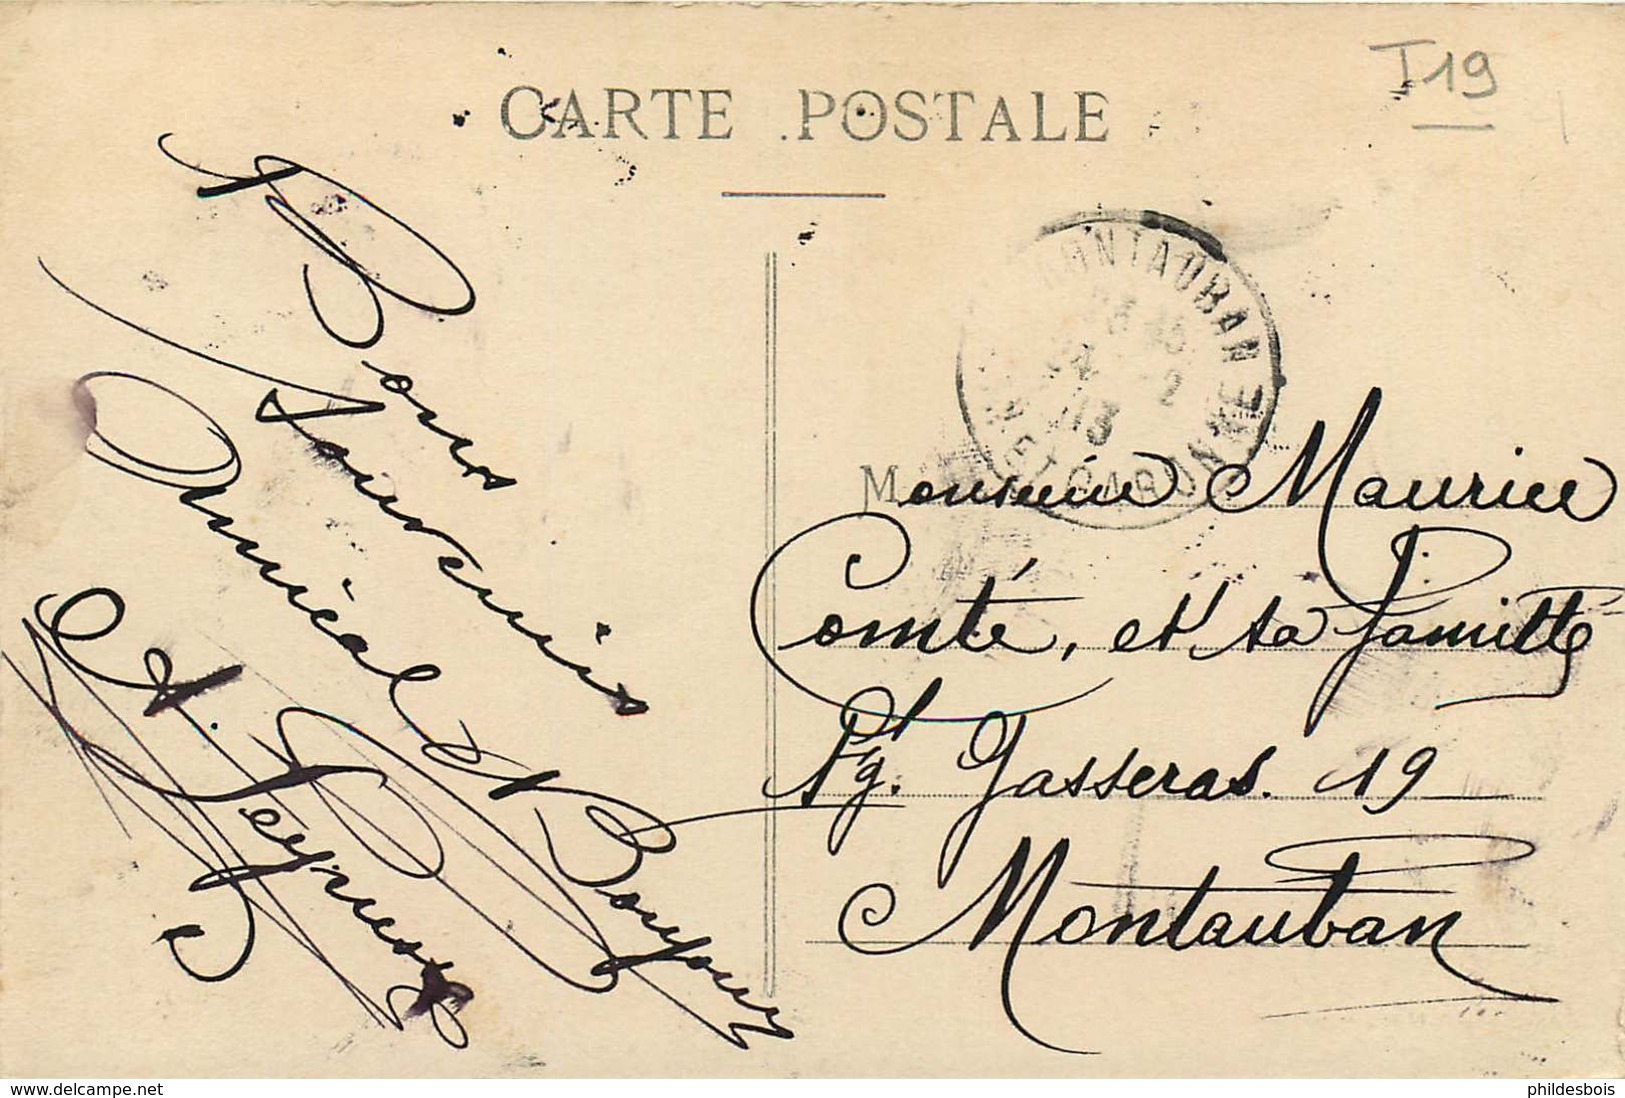 T19
CARTE POSTALE
MONTAUBAN
13 45
4 - 2
13
TARN ET GARONNE
Bons
Souvenirs
Amical et Bonjour
A. Peyrusse
Monsieur Maurice
Comté, et sa famille
Fg. Gasseras. 19
Montauban
www.delcampe.net
phildesbois